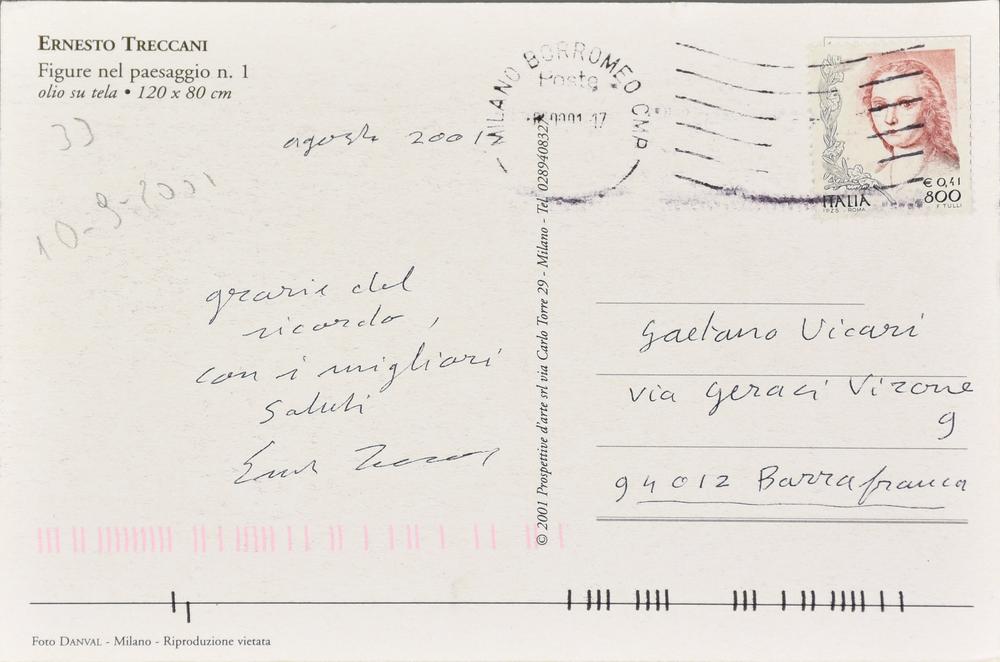 ERNESTO TRECCANI
Figure nel paesaggio n. 1
olio su tela • 120 x 80 cm
33
agosto 2001
10-9-2001
grazie del
ricordo,
con i migliori
saluti
MILANO BORROMEO CMP
Poste
© 2001 Prospettive d'arte srl via Carlo Torre 29 - Milano - Tel. 028940832
€ 0,41
800
ITALIA
F. TULLI
I.P.Z.S. - ROMA
Gaetano Vicari
via Geraci Virone
9
94012 Barrafranca
Foto DANVAL - Milano - Riproduzione vietata